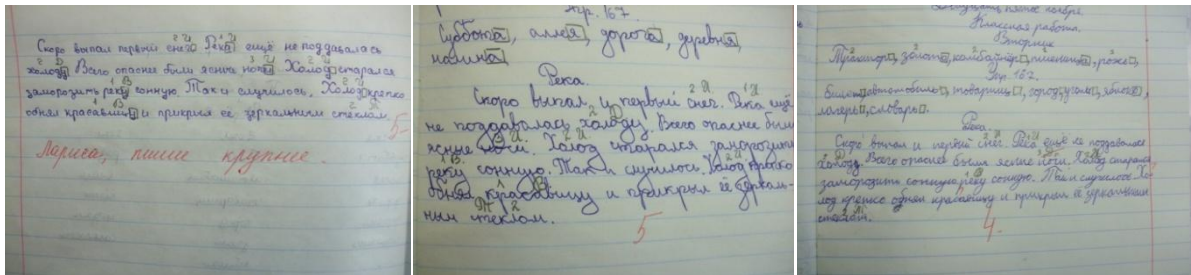 Скоро выпал первый снег. Река ещё не поддавалась
холоду. Всего опаснее были ясные ночи. Холод старался
заморозить реку сонную. Так и случилось. Холод крепко
обнял красавицу и прикрыл её зеркальным стеклом.
5-
Лариса, пиши крупнее.
Упр. 167.
Суббота, аллея, дорога, деревня,
малина
Река.
Скоро выпал и первый снег. Река ещё
не поддавалась холоду. Всего опаснее были
ясные ночи. Холод старался заморозить
реку сонную. Так и случилось. Холод крепко
обнял красавицу и прикрыл её зеркаль-
ным стеклом.
5
ноября.
Классная работа.
Вторник
Трактор, комбайнёр, пшеница, рожь,
Упр. 162
автомобиль, товарищ, город, яблоко,
словарь.
Река.
Скоро выпал и первый снег. Река ещё не поддавалась
холоду. Всего опаснее были ясные ночи. Холод старался
заморозить сонную реку сонную. Так и случилось. Хо-
лод крепко обнял красавицу и прикрыл её зеркальным
стеклом.
4-